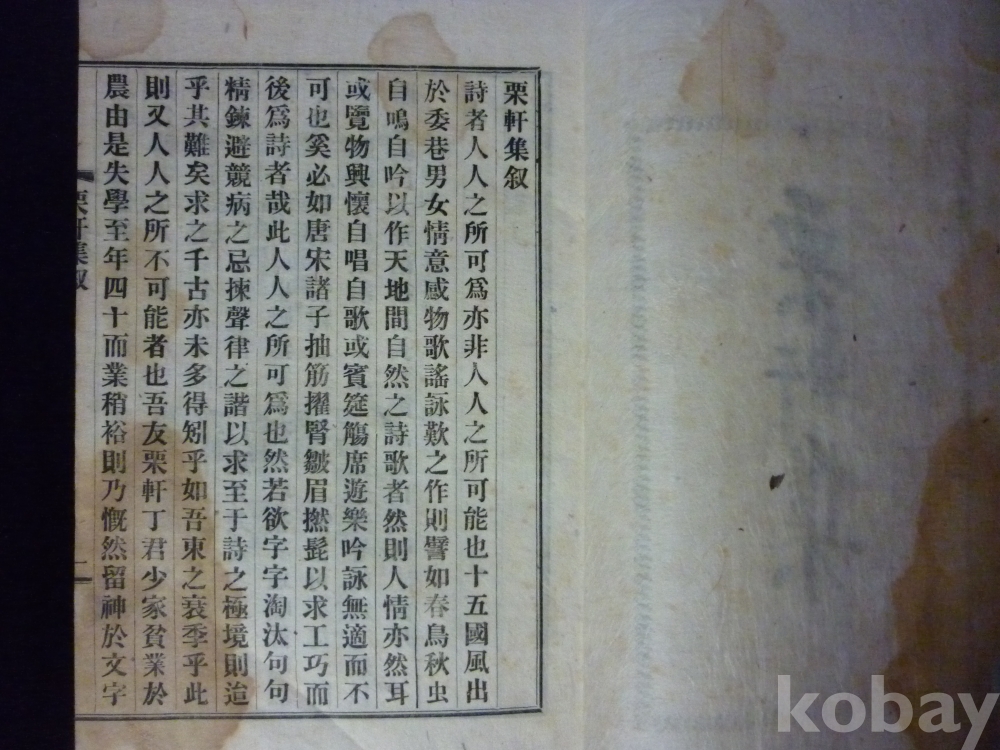 栗軒集叙
詩者人人之所可爲亦非人人之所可能也十五國風出
於委巷男女情意感物歌謠詠歎之作則譬如春鳥秋虫
自鳴自吟以作天地間自然之詩歌者然則人情亦然耳
或覽物興懷自唱自歌或賓筵觴席遊樂吟詠無適而不
可也奚必如唐宋諸子抽筋擢腎皺眉撚髭以求工巧而
後爲詩者哉此人人之所可爲也然若欲字字淘汰句句
精鍊避競病之忌揀聲律之諧以求至于詩之極境則迨
乎其難矣求之千古亦未多得矧乎如吾東之衰季乎此
則又人人之所不可能者也吾友栗軒丁君少家貧業於
農由是失學至年四十而業稍裕則乃慨然留神於文字
栗軒集叙
一
kobay